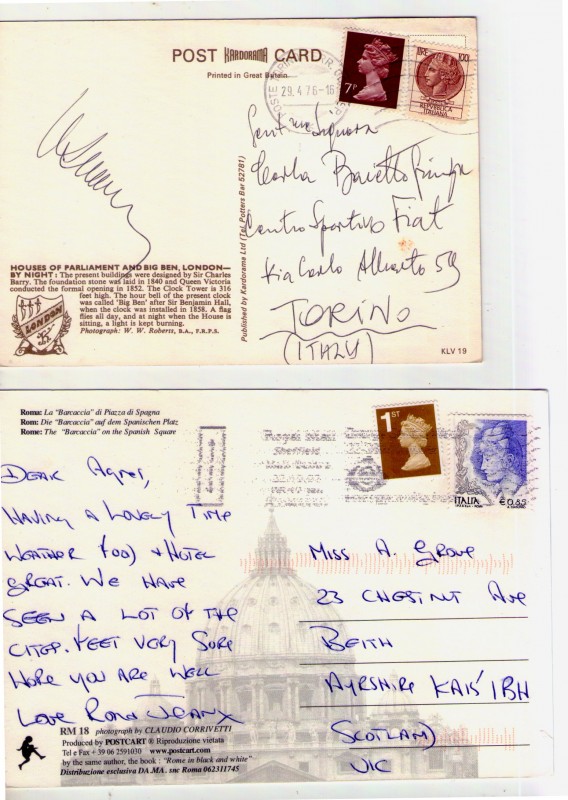 POST KARDORAMA CARD
Printed in Great Britain
7P
LIRE 100
REPVBBLICA
ITALIANA
29.4.76-16
Gent ma Signora
Carla
Centro Sportivo Fiat
Via Carlo Alberto 59
TORINO
(ITALY)
KLV 19
Published by Kardorama Ltd (Tel. Potters Bar 52781)
HOUSES OF PARLIAMENT AND BIG BEN, LONDON—
BY NIGHT: The present buildings were designed by Sir Charles
Barry. The foundation stone was laid in 1840 and Queen Victoria
conducted the formal opening in 1852. The Clock Tower is 316
feet high. The hour bell of the present clock
was called 'Big Ben' after Sir Benjamin Hall,
when the clock was installed in 1858. A flag
flies all day, and at night when the House is
sitting, a light is kept burning.
Photograph: W. W. Roberts, B.A., F.R.P.S.
LONDON
Roma: La "Barcaccia" di Piazza di Spagna
Rom: Die "Barcaccia" auf dem Spanischen Platz
Rome: The "Barcaccia" on the Spanish Square
1ST
Royal Mail
Sheffield
ITALIA € 0,85
DEAR Agnes,
HAVING A LOVELY TIME
WEATHER FOOD + HOTEL
GREAT. WE HAVE
SEEN A LOT OF THE
CITES. FEET VERY SORE
HOPE YOU ARE WELL
LOVE RONA JEAN X
MISS A. GROVE
23 CHESTNT AVE
BEITH
AYRSHIRE KA15 1BH
SCOTLAND
UK
RM 18 photograph by CLAUDIO CORRIVETTI
Produced by POSTCART ® Riproduzione vietata
Tel e Fax +39 06 2591030 www.postcart.com
by the same author, the book : "Rome in black and white"
Distribuzione esclusiva DA.MA. snc Roma 062311745